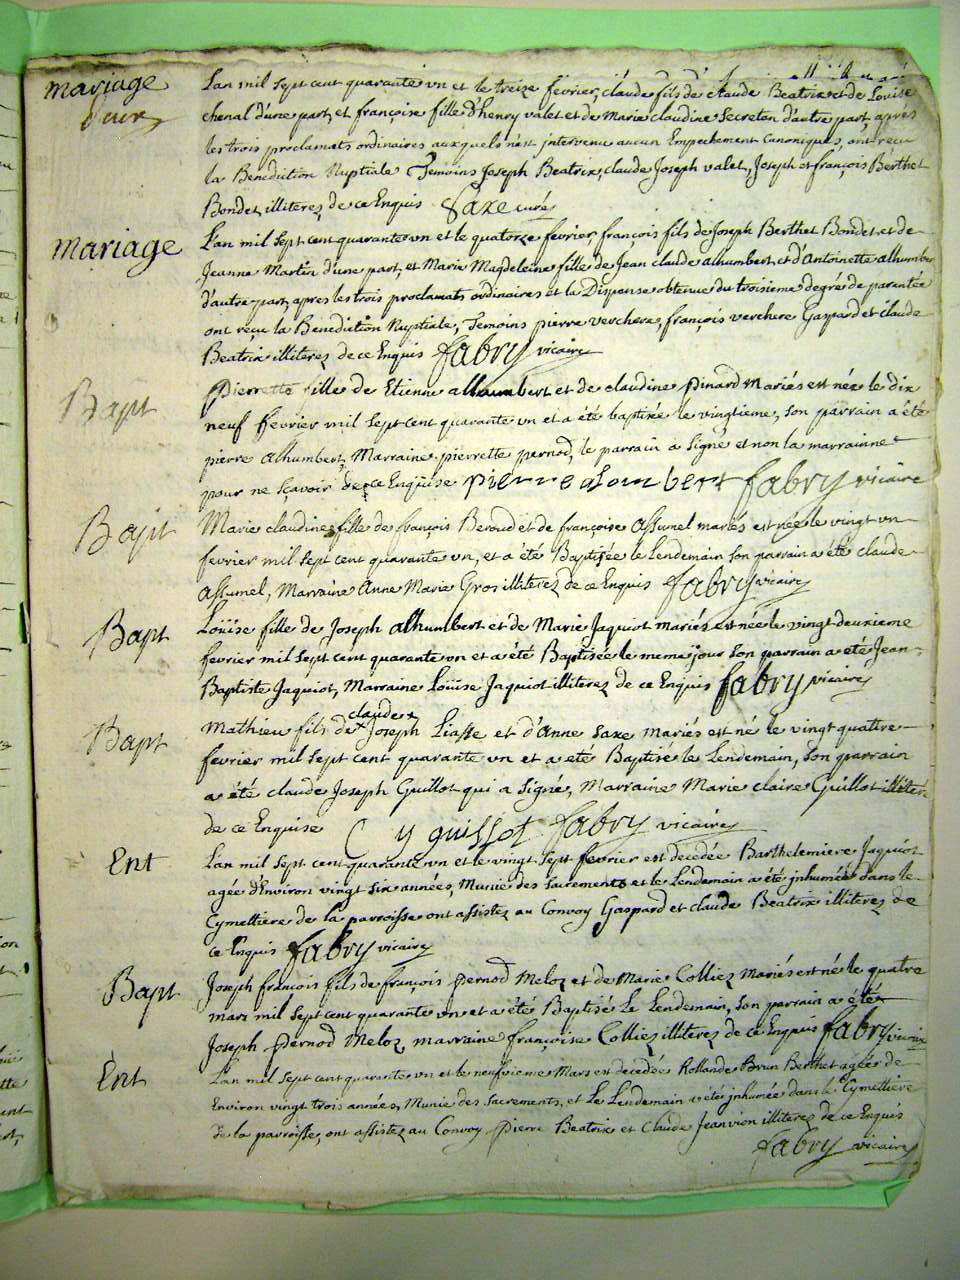 mariage Lan mil sept cent quarante vn et le treize fevrier, claude fils de claude Beatrix et de Louise
chenal d'une part, et françoise fille d'henry valet et de Marie claudine Secretan d'autre part, apres
les trois proclamats ordinaires auxquels n'est intervenu aucun Empechement canonique, ont reçu
la Benediction Nuptiale Temoins Joseph Beatrix, claude Joseph valet, Joseph et françois Berthet
Bondet, illiterez de ce Enquis Saxe curé
Mariage Lan mil sept cent quarante vn et le quatorze fevrier françois fils de Joseph Berthet Bondet et de
Jeanne Martin d'une part, et Marie Magdeleine fille de Jean claude alhumbert et d'Antoinette alhumbert
d'autre part, apres les trois proclamats ordinaires et la Dispense obtenue du troisieme degré de parentée
ont reçu la Benediction Nuptiale, Temoins pierre verchere, françois verchere Gaspard et claude
Beatrix illiterez de ce Enquis fabry vicaire
Bapt Pierrette fille de Etienne alhumbert et de claudine pinard Mariés est née le dix
neuf fevrier mil sept cent quarante vn et a été baptisée le vingtieme, son parrain a été
pierre alhumbert, Marraine pierrette pernod, le parrain a signé et non la marrainne
pour ne sçavoir de ce Enquise pierre alombert fabry vicaire
Bapt Marie claudine fille de françois Beroud et de françoise Assumel mariés est née le vingt vn
fevrier mil sept cent quarante vn, et a été Baptisée le Lendemain son parrain a été claude
Assumel, Marraine Anne Marie Gros illiterez de ce Enquis fabry vicaire
Bapt Loüise fille de Joseph alhumbert et de Marie Jaquiot mariés est née le vingt deuxieme
fevrier mil sept cent quarante vn et a été Baptisée le meme jour son parrain a été Jean
Baptiste Jaquiot, Marraine Loüise Jaquiot illiterez de ce Enquis fabry vicaire
claude
Bapt Mathieu fils de Joseph Liasse et d'Anne Saxe mariés est né le vingt quatre
fevrier mil sept cent quarante vn et a été Baptisé le Lendemain, son parrain
a été claude Joseph Guillot qui a signé, Marraine Marie claire Guillot illitere
de ce Enquise C y guillot fabry vicaire
Ent Lan mil sept cent quarante vn et le vingt sept fevrier est decedée Barthelemiere Jaquiot
agée d'Environ vingt six années, Munie des sacrements et le Lendemain a été jnhumée dans le
Cymettiere de la parroisse ont assistez au Convoy Gaspard et claude Beatrix illiterez de
ce Enquis fabry vicaire
Bapt Joseph françois fils de françois pernod Meloz et de Marie Colliez Mariés est né le quatre
mars mil sept cent quarante vn et a été Baptisé Le Lendemain, son parrain a été
Joseph pernod Meloz, marraine françoise Colliez illiterez de ce Enquis fabry vicaire
Ent Lan mil sept cent quarante vn et le neufvieme Mars est decedée Rollande Brun Berthet agée de
Environ vingt trois années, Munie des sacrements, et Le Lendemain a été jnhumée dans le Cymettiere
de la parroisse, ont assistez au Convoy Pierre Beatrix et Claude Jeanvion illiterez de ce Enquis
fabry vicaire